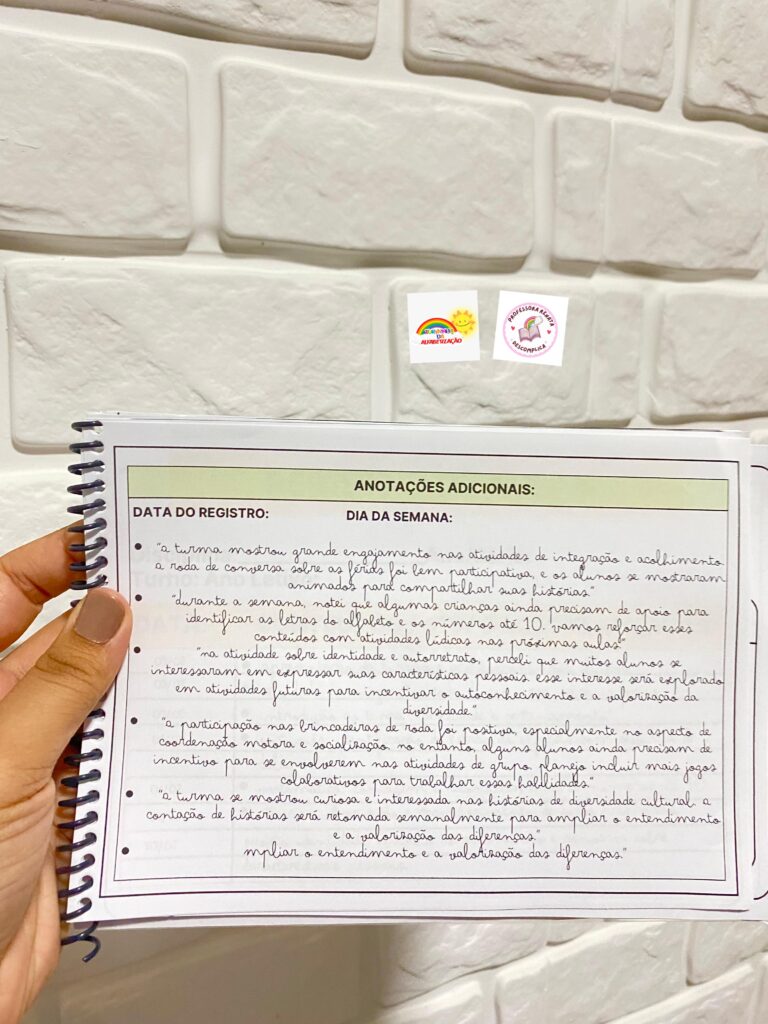 ALFABETIZAÇÃO
PROFESSORA RENATA
DESCOMPLICA
ANOTAÇÕES ADICIONAIS:
DATA DO REGISTRO: DIA DA SEMANA:
• "a turma mostrou grande engajamento nas atividades de integração e acolhimento.
a roda de conversa sobre as férias foi bem participativa, e os alunos se mostraram
animados para compartilhar suas histórias."
• "durante a semana, notei que algumas crianças ainda precisam de apoio para
identificar as letras do alfabeto e os números até 10. vamos reforçar esses
conteúdos com atividades lúdicas nas próximas aulas."
• "na atividade sobre identidade e autorretrato, percebi que muitos alunos se
interessaram em expressar suas características pessoais. esse interesse será explorado
em atividades futuras para incentivar o autoconhecimento e a valorização da
diversidade."
• "a participação nas brincadeiras de roda foi positiva, especialmente no aspecto de
coordenação motora e socialização. no entanto, alguns alunos ainda precisam de
incentivo para se envolverem nas atividades de grupo. planejo incluir mais jogos
colaborativos para trabalhar essas habilidades."
• "a turma se mostrou curiosa e interessada nas histórias de diversidade cultural. a
contação de histórias será retomada semanalmente para ampliar o entendimento
e a valorização das diferenças."
• mpliar o entendimento e a valorização das diferenças."